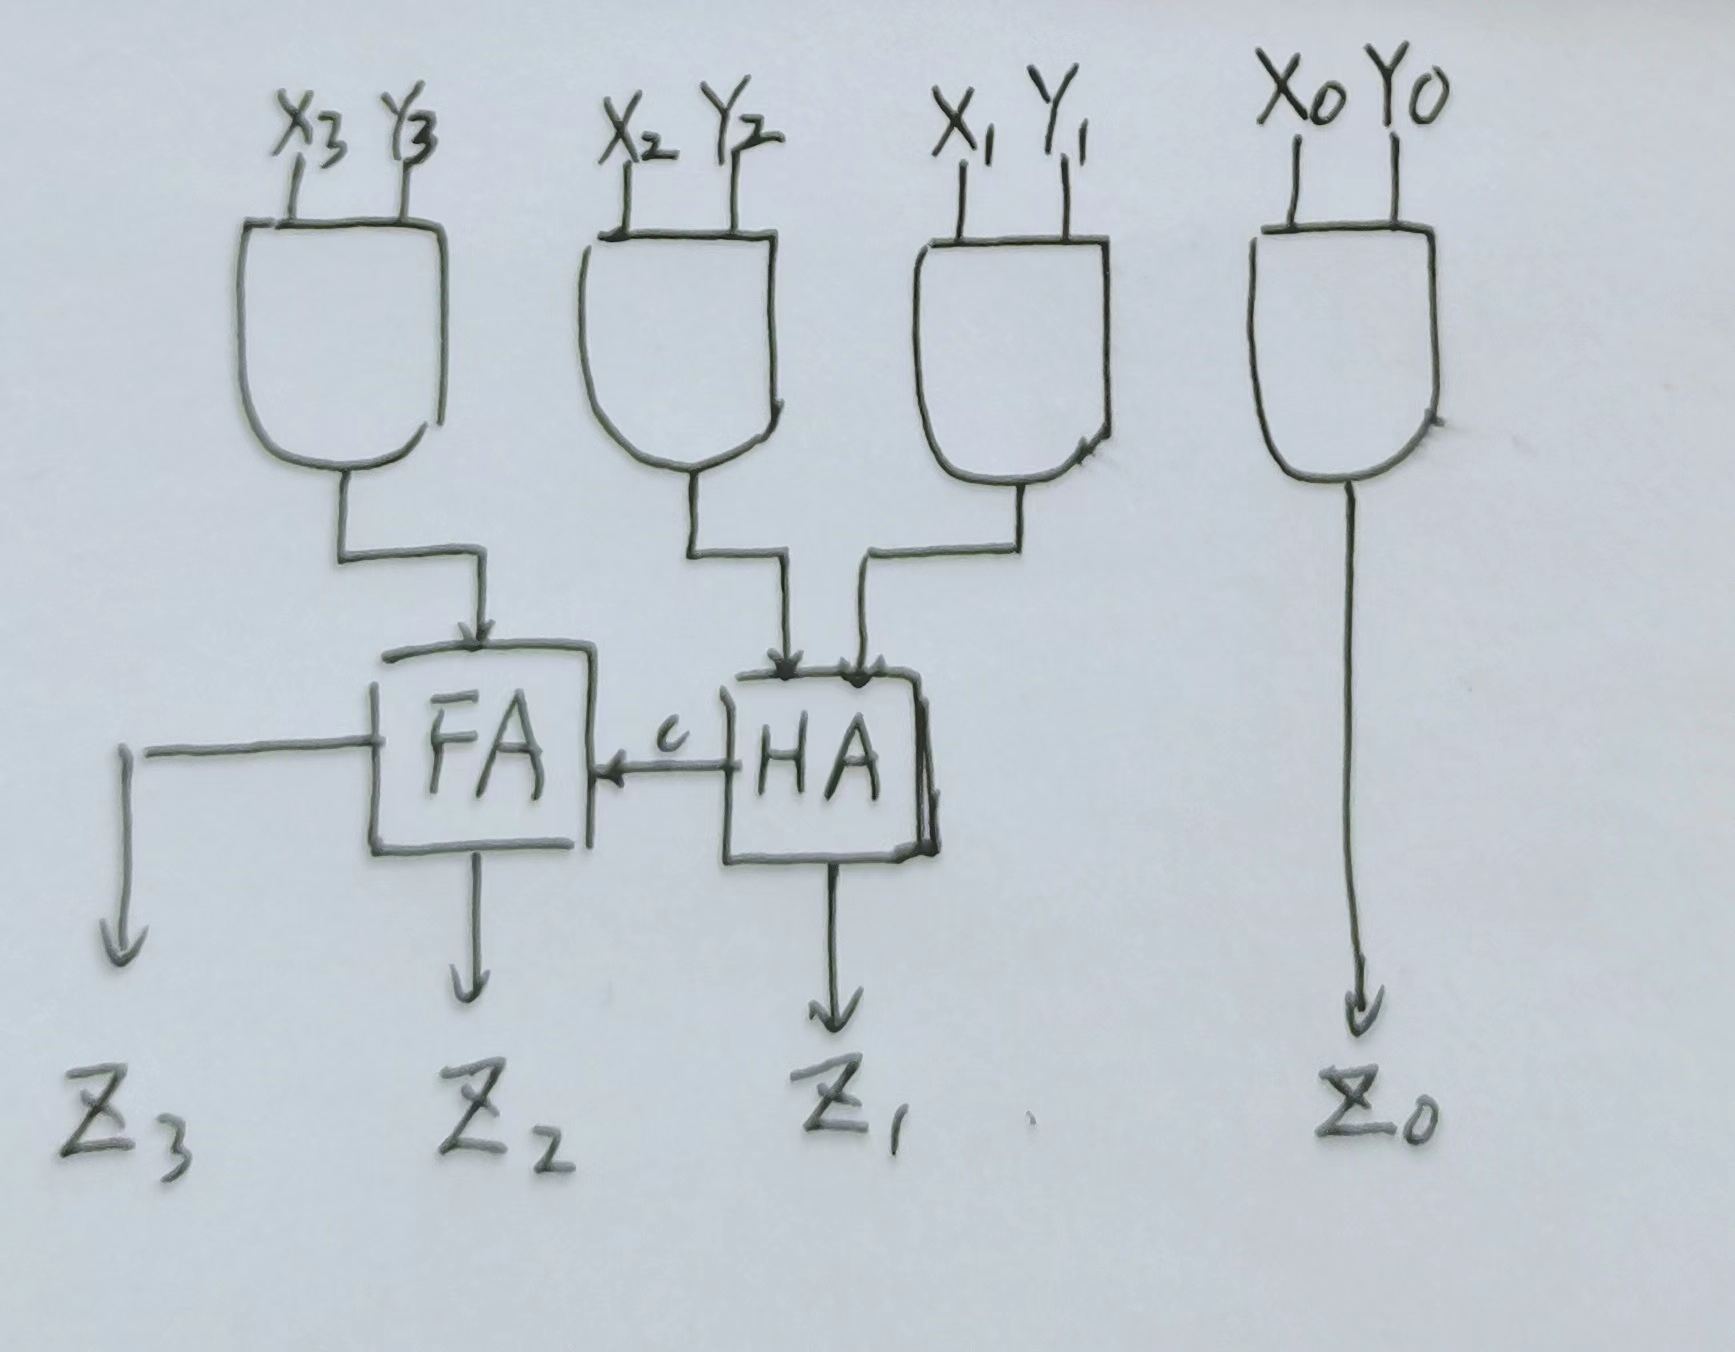 X3 Y3 X2 Y2 X1 Y1 X0 Y0
FA C HA
Z3 Z2 Z1 Z0